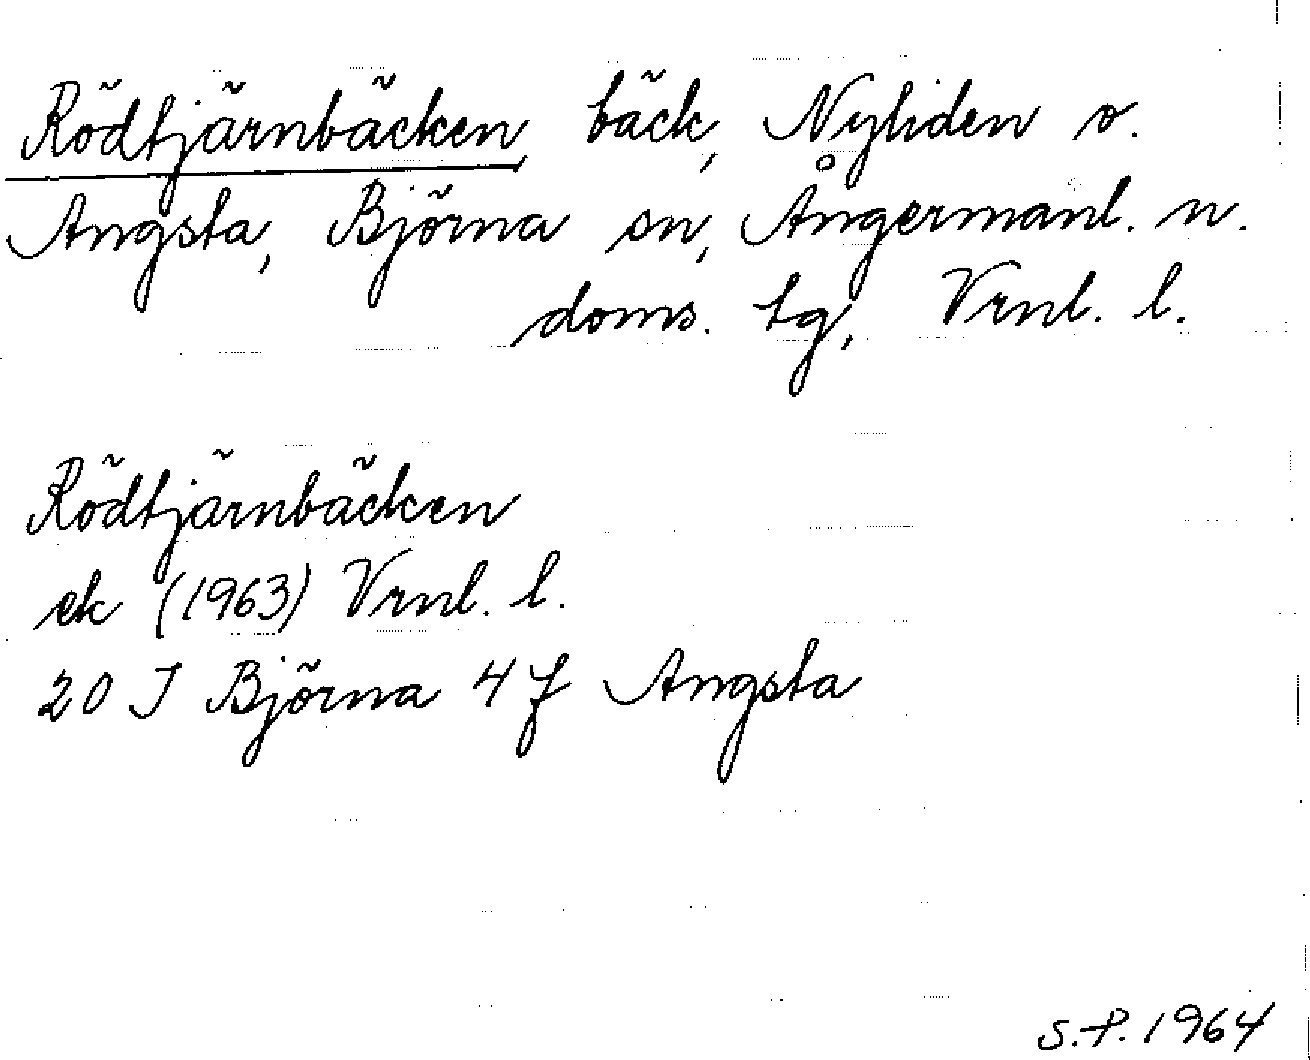 Rödtjärnbäcken, bäck, Nyliden o.
Angsta, Björna sn, Ångermanl. n.
doms. tg, Vrnl. l.
Rödtjärnbäcken
ek (1963) Vrnl. l.
20 J Björna 4 f Angsta
S.P. 1964